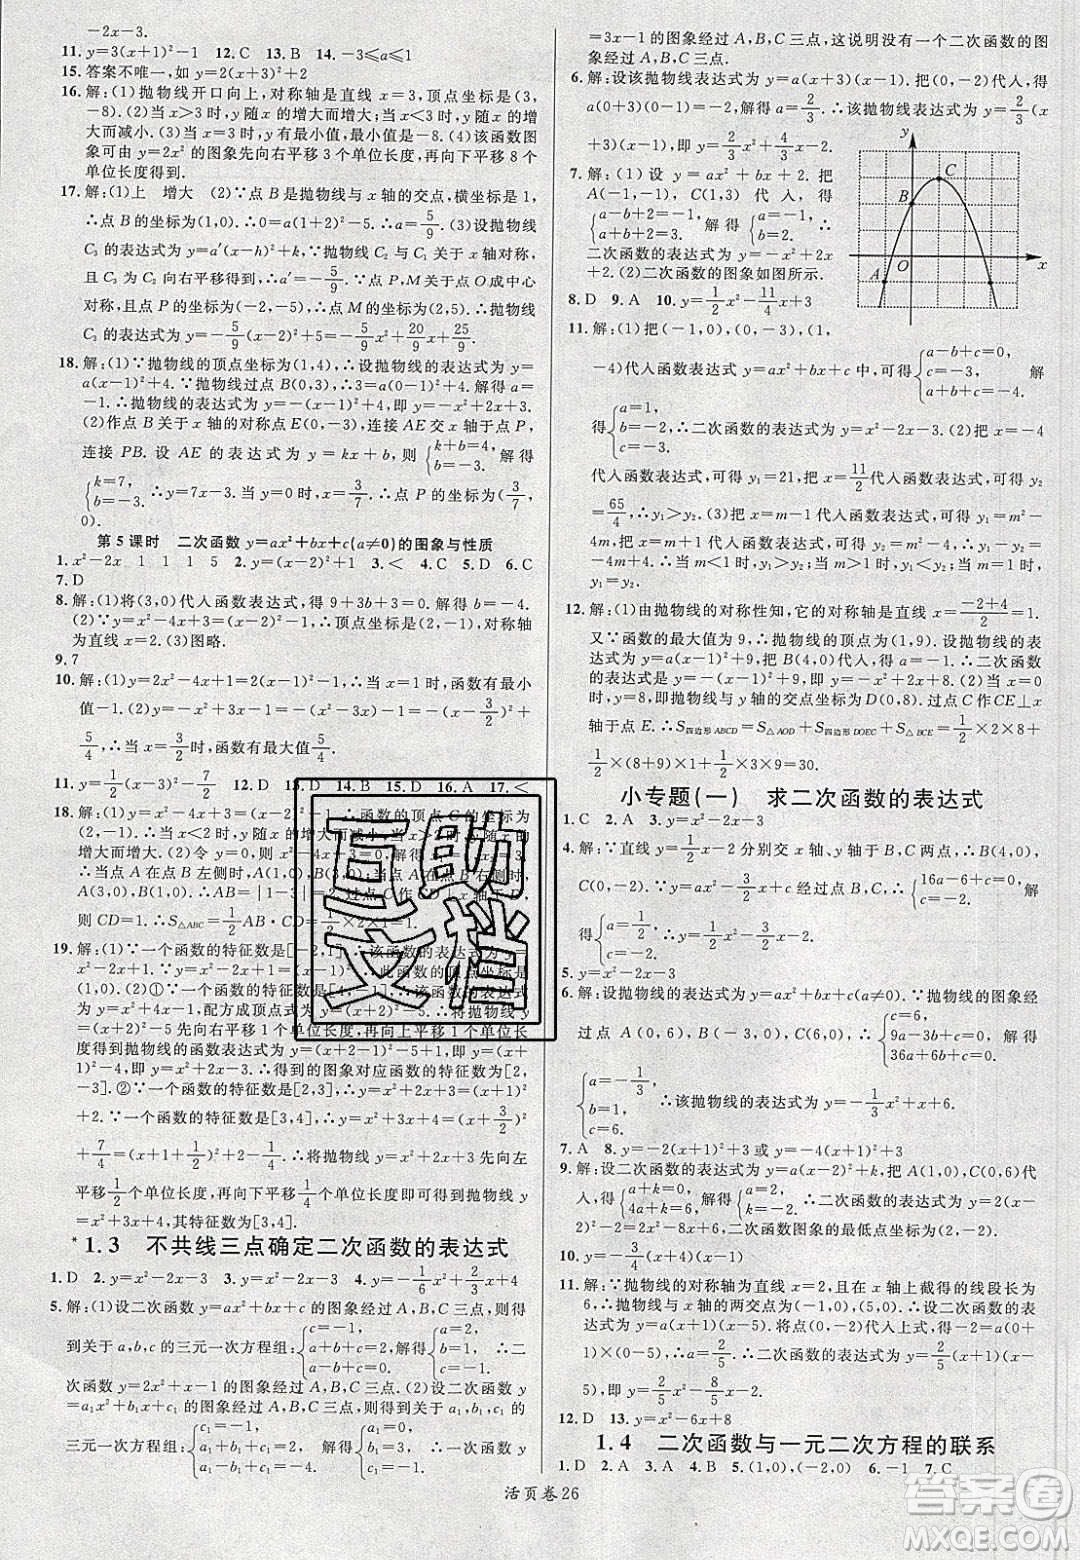 -2x-3.
11. y=3(x+1)²-1 12. C 13. B 14. -3≤a≤1
15. 答案不唯一,如 y=2(x+3)²+2
16. 解:(1)抛物线开口向上,对称轴是直线 x=3,顶点坐标是(3,
-8).(2)当 x>3 时,y 随 x 的增大而增大;当 x<3 时,y 随 x 的增
大而减小.(3)当 x=3 时,y 有最小值,最小值是-8.(4)该函数图
象可由 y=2x² 的图象先向右平移 3 个单位长度,再向下平移 8 个
单位长度得到.
17. 解:(1)上 增大 (2)∵点 B 是抛物线与 x 轴的交点,横坐标是 1,
∴点 B 的坐标为(1,0).∴0=a(1+2)²-5.∴a=5/9.(3)设抛物线
C₃ 的表达式为 y=a′(x-h)²+k,∵抛物线 C₂ 与 C₁ 关于 x 轴对称,
且 C₃ 为 C₂ 向右平移得到,∴a′=-5/9.∵点 P,M 关于点 O 成中心
对称,且点 P 的坐标为(-2,-5),∴点 M 的坐标为(2,5).∴抛物线
C₃ 的表达式为 y=-5/9(x-2)²+5=-5/9x²+20/9x+25/9.
18. 解:(1)∵抛物线的顶点坐标为(1,4),∴设抛物线的表达式为 y=
a(x-1)²+4.∵抛物线过点 B(0,3),∴3=a(0-1)²+4.解得 a=
-1.∴抛物线的表达式为 y=-(x-1)²+4,即 y=-x²+2x+3.
(2)作点 B 关于 x 轴的对称点 E(0,-3),连接 AE 交 x 轴于点 P,
连接 PB. 设 AE 的表达式为 y=kx+b,则{k+b=4, b=-3. 解得
{k=7, b=-3. ∴y=7x-3.当 y=0 时,x=3/7.∴点 P 的坐标为(3/7,
0).
第 5 课时 二次函数 y=ax²+bx+c(a≠0)的图象与性质
1. x²-2x 1 1 1 5 2. y=(x-2)²+1 3. < 4. C 5. D 6. C
7. D
8. 解:(1)将(3,0)代入函数表达式,得 9+3b+3=0.解得 b=-4.
(2)∵y=x²-4x+3=(x-2)²-1,∴顶点坐标为(2,-1),对称轴
为直线 x=2.(3)图略.
9. 7
10. 解:(1)y=2x²-4x+1=2(x-1)²-1,∴当 x=1 时,函数有最小
值-1.(2)∵y=-x²+3x-1=-(x²-3x)-1=-(x-3/2)²+
5/4,∴当 x=3/2时,函数有最大值5/4.
11. y=1/2(x-4)²-7/2 12. D 13. D 14. B 15. D 16. A 17. <
∴函数的顶点 C 的坐标为
(2,-1).∴当 x<2 时,y 随 x 的增大而减小;当 x>2 时,y 随 x 的
增大而增大.(2)令 y=0,
∴当点 A 在点 B 左侧时,A(1,0),B(3,0);当点 A 在点 B 右侧时,
A(3,0),B(1,0).∴AB=|1-3|=2.过点 C 作
则 CD=1.∴S△ABC=1/2AB·CD=1/2×2×1=1.
19. 解:(1)∵一个函数的特征数是[-2,1],∴该函数的表达式为 y=
x²-2x+1=(x-1)².∴此函数的顶点坐标是
(1,0).(2)①∵一个函数的特征数是[4,-1],∴该函数的表达式
为 y=x²+4x-1,配方成顶点式为 y=(x+2)²-5.∴将抛物线先
向右平移 1 个单位长度,再向上平移 1 个单位长度,得到的图象对
应的函数表达式是 y=(x+2-1)²-5+1,即 y=(x+1)²-4=
x²+2x-3.∴得到的图象对应函数的特征数是[2,
-3].②∵一个函数的特征数是[2,3],∴y=x²+2x+3=(x+1)²
+2.∵一个函数的特征数是[3,4],∴y=x²+3x+4=(x+3/2)²
+7/4=(x+1+1/2)²+2-1/4.∴将抛物线 y=x²+2x+3 先向左
平移1/2个单位长度,再向下平移1/4个单位长度即可得抛物线
y=x²+3x+4,其特征数为[3,4].
*1.3 不共线三点确定二次函数的表达式
1. D 2. y=x²-2x-3 3. y=x²-2x-3 4. y=-1/6x²+2/3x+4
5. 解:(1)设二次函数 y=ax²+bx+c 的图象经过 A,B,C 三点,则得
到关于 a,b,c 的三元一次方程组:{c=-1, a+b+c=2, 解得 ∴二
次函数 y=2x²+x-1 的图象经过 A,B,C 三点.(2)设二次函数
y=a₁x²+b₁x+c₁ 的图象经过 A,B,C 三点,则得到关于 a₁,b₁,c₁ 的
三元一次方程组:{c₁=-1, a₁+b₁+c₁=2, 解得{a₁=0, b₁=3, c₁=-1. ∴二次函数 y=a₁x²+b₁x+c₁
的图象经过 A,B,C 三点,这说明没有一个二次函数的图
象经过 A,B,C 三点.
6. 解:设该抛物线表达式为 y=a(x+3)(x-1).把(0,-2)代入,得
a(0+3)(0-1)=-2,解得 a=2/3.∴该抛物线表达式为 y=2/3(x
+3)(x-1),即 y=2/3x²+4/3x-2.
7. 解:(1)设 y=ax²+bx+2,把
A(-1,-1),C(1,3)代入,得
{a-b+2=-1, a+b+2=3. 解得{a=-1, b=2. ∴
二次函数的表达式为 y=-x²+2x
+2.(2)二次函数的图象如图所示.
y
C
B
A O x
8. D 9. A 10. y=1/2x²-11/4x+3
11. 解:(1)把(-1,0),(0,-3),(1,
-4)代入函数表达式 y=ax²+bx+c 中,可得{a-b+c=0, c=-3, a+b+c=-4. 解
得{a=1, b=-2, c=-3. ∴二次函数的表达式为 y=x²-2x-3.(2)把 x=-4
代入函数表达式,可得 y₁=21,把 x=11/2代入函数表达式,可得 y₂
=65/4,∴y₁>y₂.(3)把 x=m 代入函数表达式,可得 y₁=m²-
-4m+4.∴当 m<1 时,y₁>y₂;当 m=1 时,y₁=y₂;当 m>1 时,
y₁<y₂.
12. 解:(1)由抛物线的对称性知,它的对称轴是直线 x=(-2+4)/2=1.
又∵函数的最大值为 9,∴抛物线的顶点为(1,9).设抛物线的表
达式为 y=a(x-1)²+9,代入 B(4,0),解得 a=-1.∴二次函数
的表达式是 y=-(x-1)²+9,即 y=-x²+2x+8.(2)当 x=0
时,y=8,即抛物线与 y 轴的交点坐标为 D(0,8).过点 C 作CE⊥x
轴于点 E.∴S四边形ABCD=S△AOD+S四边形DOEC+S△BCE=1/2×2×8+
1/2×(8+9)×1+1/2×3×9=30.
小专题(一) 求二次函数的表达式
1. C 2. A 3. y=x²-2x-3
4. 解:∵直线 y=1/2x-2 分别交 x 轴、y 轴于 B,C 两点,∴B(4,0),
C(0,-2).∵y=ax²-3/2x+c 经过点 B,C,∴{16a-6+c=0, c=-2. 解
得{a=1/2, c=-2. ∴y=1/2x²-3/2x-2.
5. y=x²-2x-3
6. 解:设抛物线的表达式为 y=ax²+bx+c(a≠0).∵抛物线的图象经
过点 A(0,6),B(-3,0),C(6,0),∴{c=6, 9a-3b+c=0, 36a+6b+c=0. 解得
{a=-1/3, b=1, c=6. ∴该抛物线的表达式为 y=-1/3x²+x+6.
7. A 8. y=-2(x+1)²+3 或 y=-4(x+1)²+3
9. 解:设二次函数的表达式为 y=a(x-2)²+k,把 A(1,0),C(0,6)代
入,得{a+k=0, 4a+k=6. 解得{a=2, k=-2. 则二次函数的表达式为 y=2(x-
2)²-2,二次函数图象的最低点坐标为(2,-2).
10. y=-3/4(x+4)(x-2)
11. 解:∵抛物线的对称轴为直线 x=2,且在 x 轴上截得的线段长为
6,∴抛物线与 x 轴的两交点为(-1,0),(5,0).∴设二次函数的表
达式为 y=a(x+1)(x-5)(a≠0).将点(0,-2)代入上式,得-2
=a(0+1)(0-5).∴a=2/5.∴二次函数的表达式为 y=2/5(x+1)(x-
5),即 y=2/5x²-8/5x-2.
12. D 13. y=x²-6x+8
1.4 二次函数与一元二次方程的联系
1. D 2. C 3. A 4. D 5. (1,0),(-2,0) 6. -1 7. C
互助文档
活页卷26
答案圈
MXQE.COM